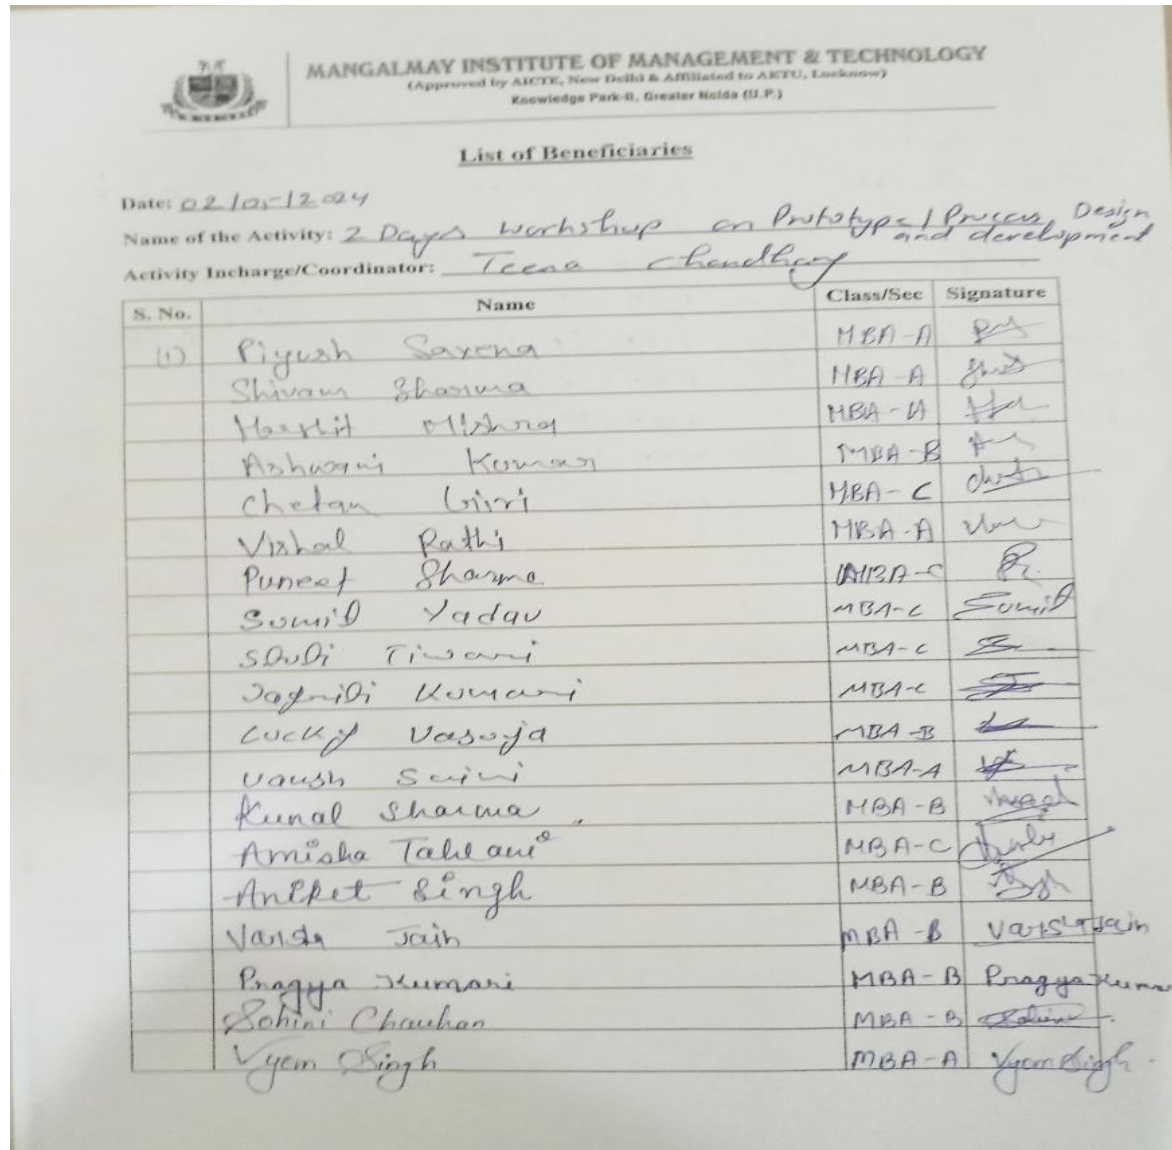 MANGALMAY INSTITUTE OF MANAGEMENT & TECHNOLOGY
(Approved by AICTE, New Delhi & Affiliated to AKTU, Lucknow)
Knowledge Park-II, Greater Noida (U.P.)
List of Beneficiaries
Date: 02/ /2024
Name of the Activity: 2 Days Workshup on Prototype/Process, Design and development
Activity Incharge/Coordinator: Teena Chaudhary
S. No. Name Class/Sec Signature
(1) Piyush Saxena MBA-A
Shivam Sharma MBA-A
Harshit Mishra MBA-A
Ashwani Kumar MBA-B
Chetan Giri MBA-C
Vishal Rathi MBA-A
Puneet Sharma MBA-C
Sumit Yadav MBA-C Sumit
Tiwari MBA-C
Kumari MBA-C
Lucky Vasoya MBA-B
Vansh Saini MBA-A
Kunal Sharma MBA-B
Amisha MBA-C
Aniket Singh MBA-B
Jain MBA-B Jain
Pragya Kumari MBA-B Pragya Kuma
Sohini Chauhan MBA-B
Vyom Singh MBA-A Vyom Singh